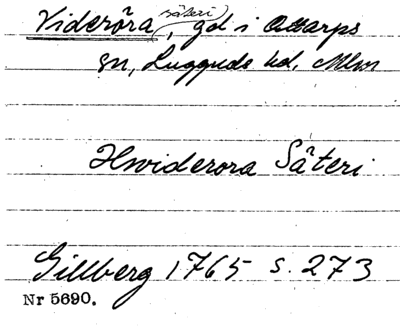 Videröra (säteri), gd i Ottarps
sn, Luggude hd, Mlm
Hwiderora Säteri
Gillberg 1765 s. 273
Nr 5690.